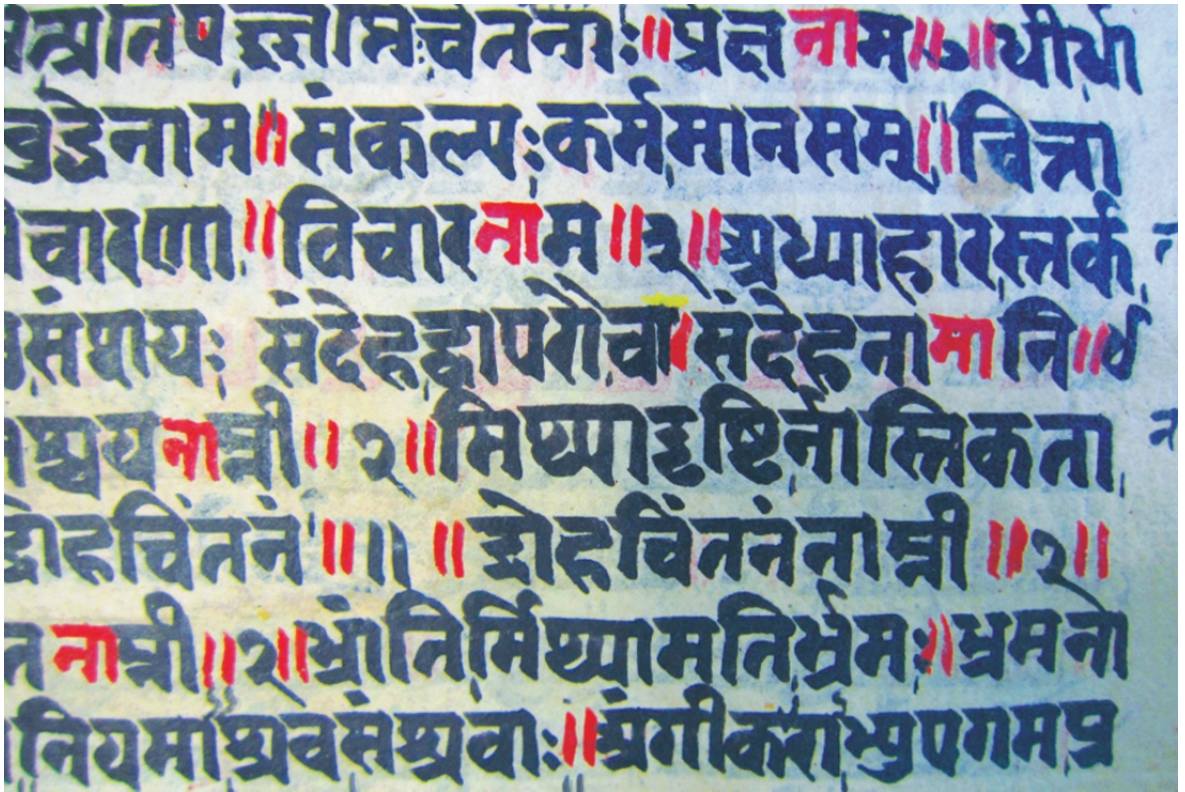 त्प्रतिपज्ज्ञप्तिचेतनाः॥प्रेक्षनाम॥७॥धीर्धा
बुद्धेनाम॥संकल्पःकर्ममानसम्॥चित्ता
चारणा॥विचारनाम॥३॥अध्याहारस्तर्क
संशयः संदेहद्वापरौचा संदेहनामानि॥४
श्चयनाम्नी॥२॥मिथ्यादृष्टिर्नास्तिकता
द्रोहचिंतनं॥॥ ॥द्रोहचिंतननाम्नी॥२॥
त नाम्नी॥२॥भ्रांतिर्मिथ्यामतिर्भ्रमः॥भ्रमनो
नियमाश्रवसंश्रवाः॥अंगीकाराभ्युपगमप्र